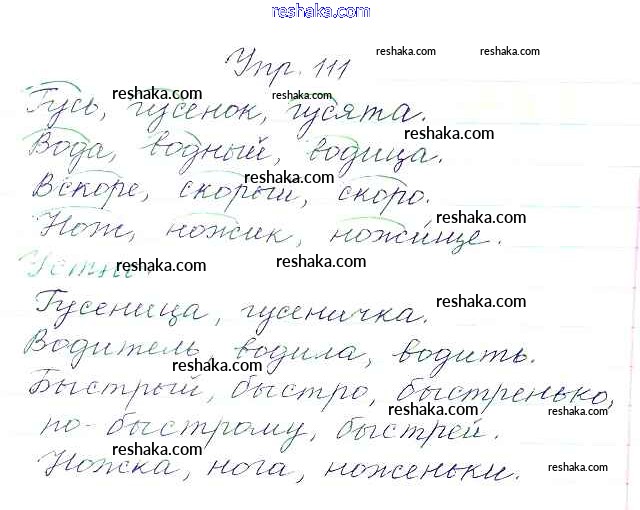 reshaka.com
Упр. 111
reshaka.com reshaka.com
Гусь, гусенок, гусята.
reshaka.com reshaka.com
Вода, водный, водица.
reshaka.com
Вскоре, скорый, скоро.
reshaka.com
Нож, ножик, ножище.
reshaka.com
Устно
reshaka.com reshaka.com
Гусеница, гусеничка.
reshaka.com
Водитель, водила, водить.
reshaka.com
Быстрый, быстро, быстренько,
reshaka.com reshaka.com
по-быстрому, быстрей.
reshaka.com reshaka.com
Ножка, нога, ноженьки.
reshaka.com